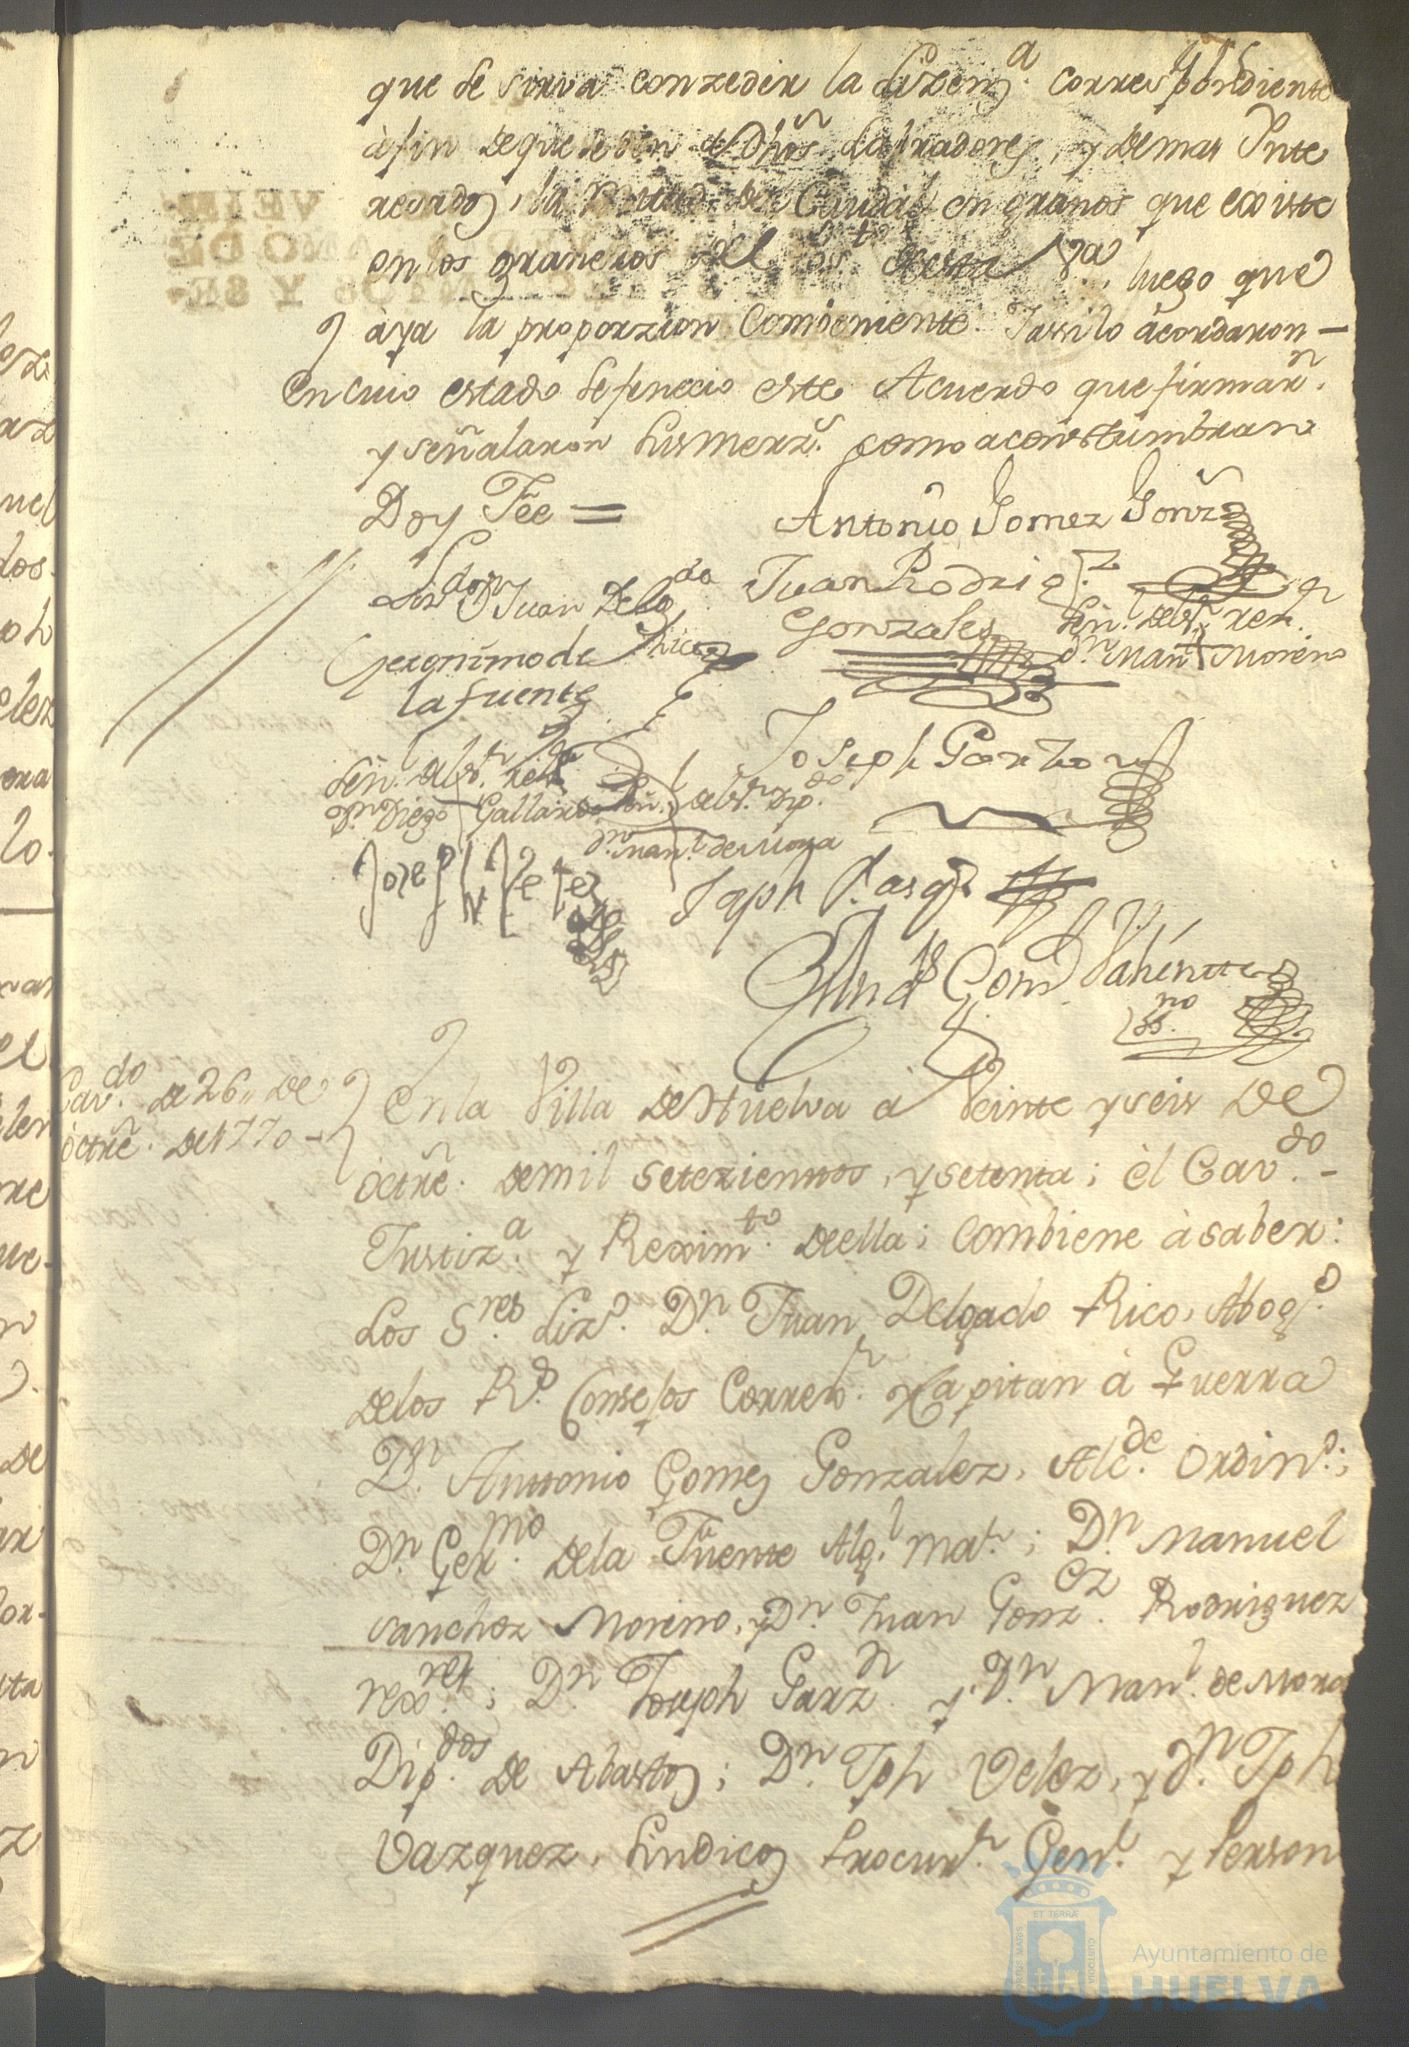 que se sirva conzeder la lizenz.ª correspondiente
à fin de que se den à Dhôs Labradores, y demas Ynte
resados, la Mitad del Caudal en granos que existe
en los graneros del Posito de esta V.ª, luego que
àya la proporzion combeniente. Y assi lo àcordaron —
en cuio estado se fenecio este Acuerdo que firmar.n
y señalaron sus merz.s como acostumbran
Doy Fee =
Antonio Gomez Gonz
Lizdo Dn Juan Delgdo
Rico
Juan Rodrig.z
Gonzales
Señ.l del Sr. rex.r
Dn Man.l Moreno
Geronimo de
la fuente
Joseph Garzon
Señ.l del Sr. rex.r
Dn Diego Gallardo
Señ.l del Sr. Dip.do
Dn Man.l de Mora
Josef Velez
Joph Vasq.z
Gom.z Valiente
ss.no
Cav.do de 26,, de
òctrê. de 1770 -
En la Villa de Huelva à Veinte y seis de
òctrê. de mil setezientos, y setenta; èl Cav.do -
Justiz.a y Rexim.to de ella; combiene à saber:
Los S.res Liz.do D.n Juan Delgado Rico, Abog.do
de los R.s Consejos Correx.r y Capitan à Guerra
D.n Anttonio Gomez Gonzalez, Alc.de Ordin.o;
D.n Ger.mo de la Fuente Alg.l ma.r; D.n Manuel
Sanchez Moreno, y D.n Juan Gonz.ez Rodriguez
rex.res; D.n Joseph Garz.n y D.n Man.l de Mora
Dip.dos de Abastos; D.n Jph Velez, y D.n Jph
Vazquez, Sindicos Procur.r Gen.l y Person
ET TERRÆ
Ayuntamiento de
HUELVA